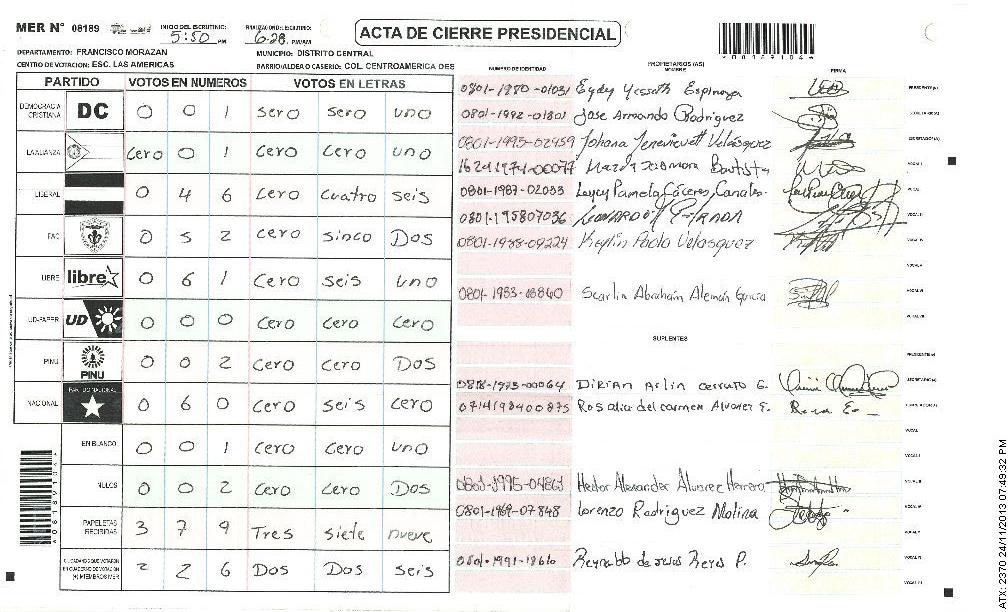 MER N° 08189 INICIO DEL ESCRUTINIO: 5:50 PM FINALIZACION DEL ESCRUTINIO: 6:28 PM/AM ACTA DE CIERRE PRESIDENCIAL
DEPARTAMENTO: FRANCISCO MORAZAN MUNICIPIO: DISTRITO CENTRAL
CENTRO DE VOTACION: ESC. LAS AMERICAS BARRIO/ALDEA O CASERIO: COL. CENTROAMERICA OES
NUMERO DE IDENTIDAD PROPIETARIOS (AS) NOMBRE FIRMA
PARTIDO VOTOS EN NUMEROS VOTOS EN LETRAS
DEMOCRACIA CRISTIANA DC 0 0 1 sero sero uno
LA ALIANZA cero 0 1 cero cero uno
LIBERAL 0 4 6 cero cuatro seis
FAC 0 5 2 cero sinco Dos
LIBRE libre 0 6 1 cero seis uno
UD-FAPER UD 0 0 0 cero cero cero
PINU PINU 0 0 2 cero cero Dos
NACIONAL PARTIDO NACIONAL 0 6 0 cero seis cero
EN BLANCO 0 0 1 cero cero uno
NULOS 0 0 2 cero cero Dos
PAPELETAS RECIBIDAS 3 7 9 Tres siete nueve
CIUDADANOS QUE VOTARON EN CUADERNO DE VOTACION (+) MIEMBROS MER 2 2 6 Dos Dos seis
0801-1980-01031 Eydy Yessath Espinoza PRESIDENTE(A)
0801-1992-01801 Jose Armando Rodriguez SECRETARIO(A)
0801-1993-02459 Johana Velásquez ESCRUTADOR(A)
Bautista VOCAL I
0801-1987-02033 Leycy Pamela Cáceres Canales VOCAL
0801-195807036 VOCAL
0801-1988-09224 Keylin Paola Velasquez VOCAL
VOCAL
Scarlin Abraham Alemán Garcia VOCAL
VOCAL
SUPLENTES
PRESIDENTE(A)
0818-1973-00064 Dirian Arlin cerrato G. SECRETARIO(A)
Rosalia del carmen Alvarez ESCRUTADOR(A)
VOCAL
VOCAL
Hector Alexander Alvarez Herrera VOCAL
0801-1969-07848 Lorenzo Rodriguez Molina VOCAL
VOCAL
Reynaldo de Jesus Reyes P. VOCAL
VOCAL
ATX: 2370 24/11/2013 07:49:32 PM